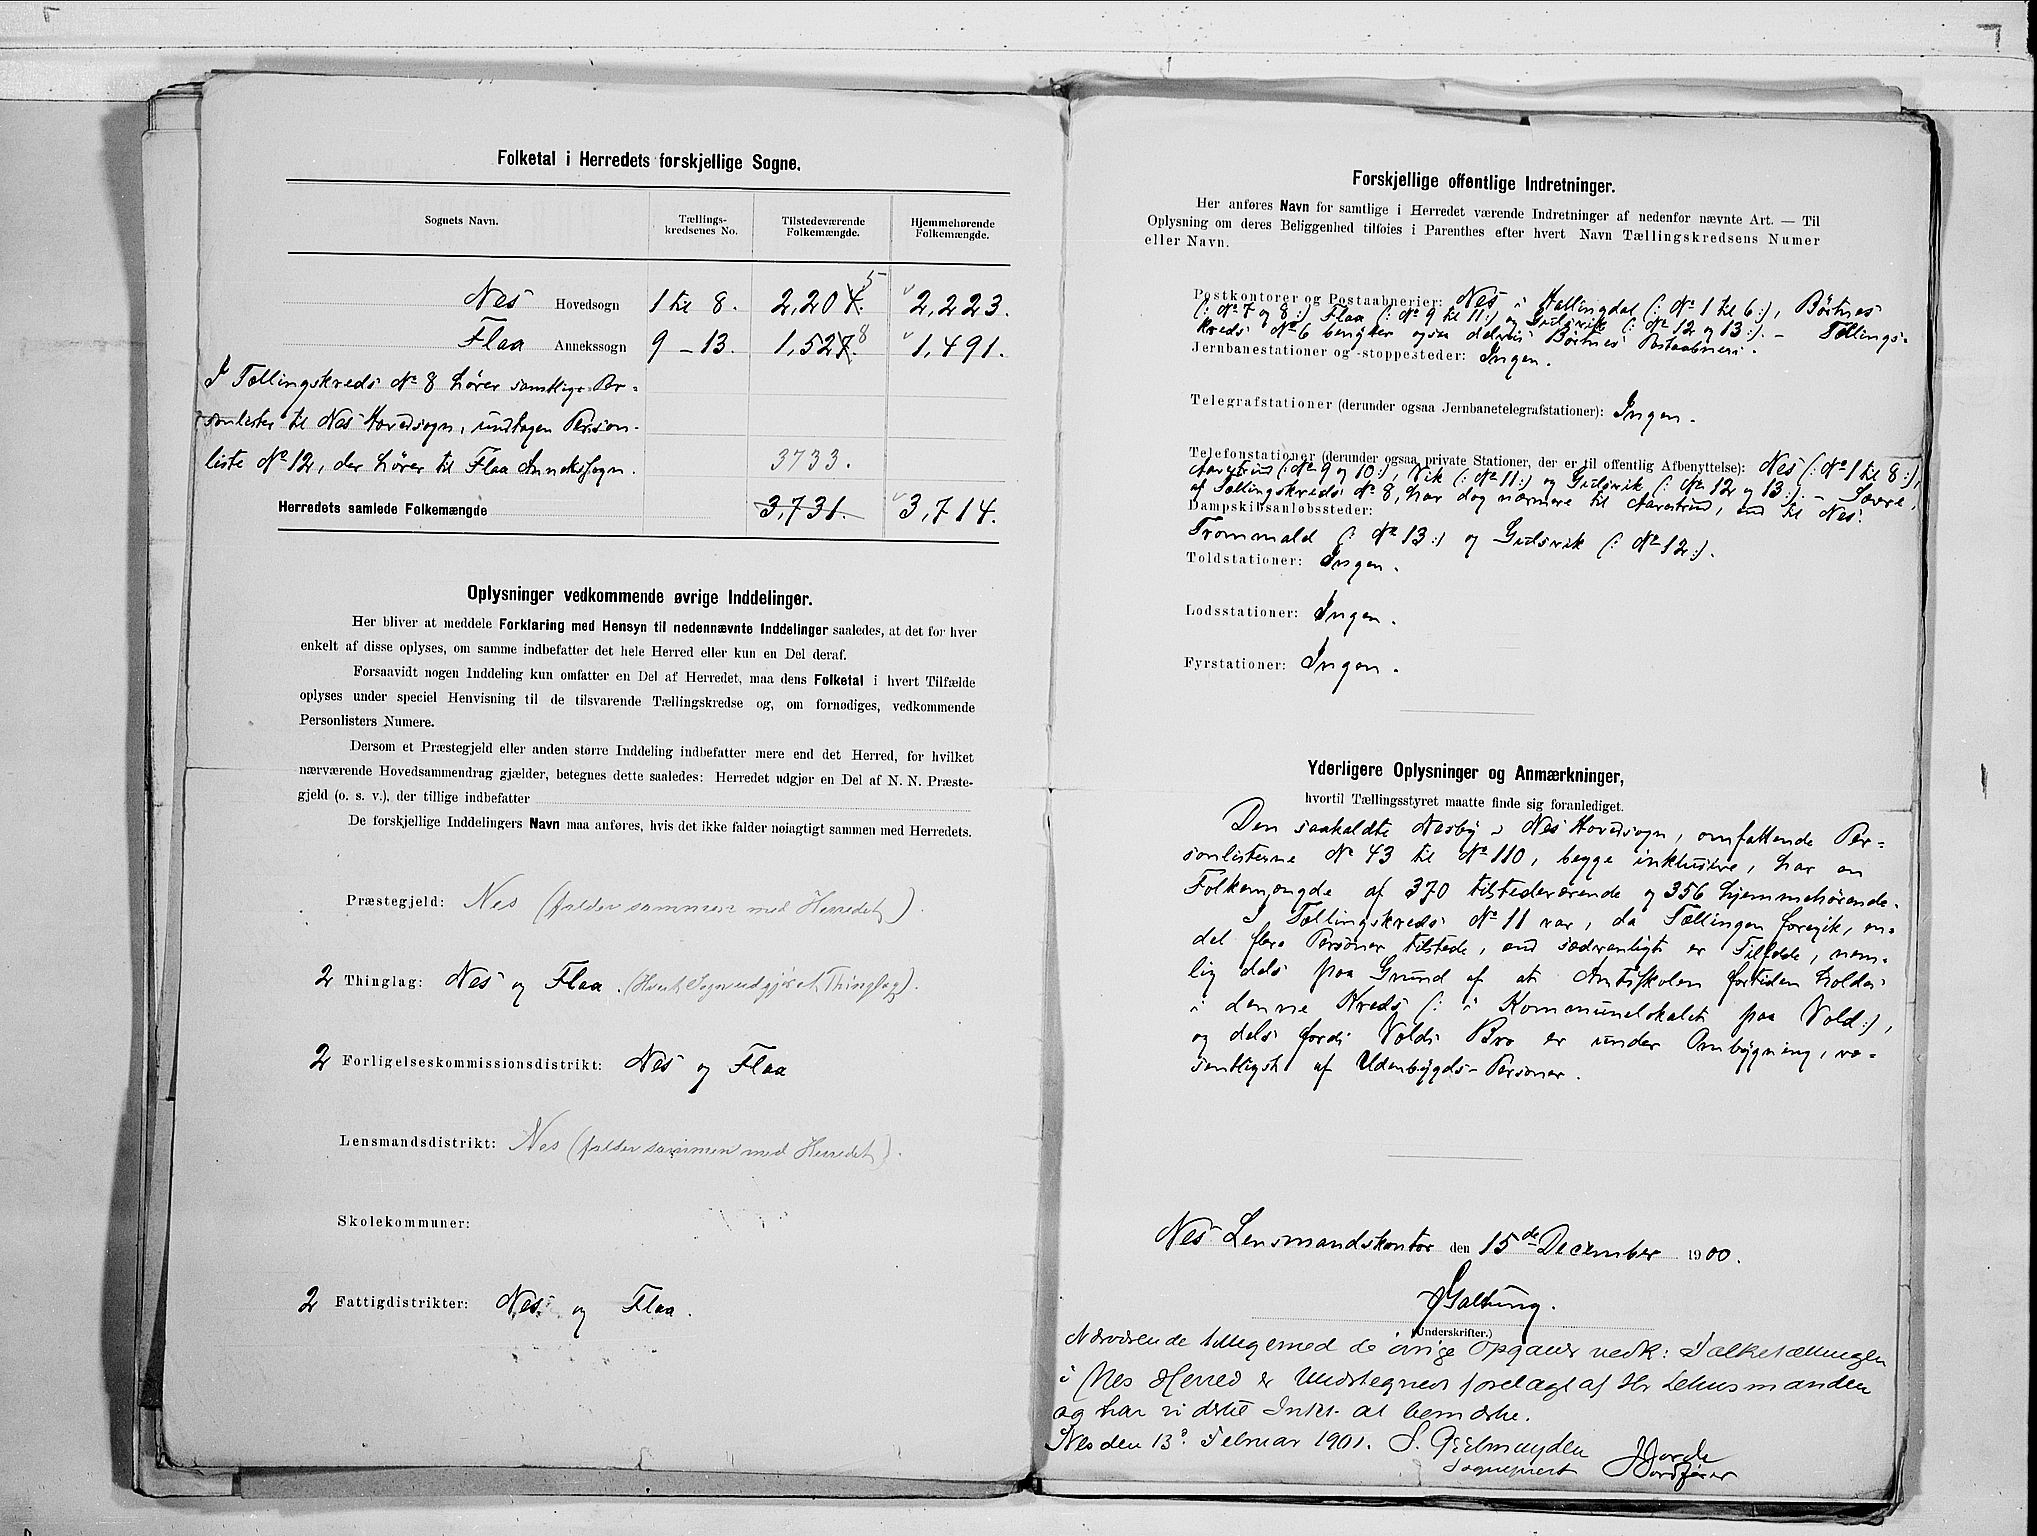 Folketal i Herredets forskjellige Sogne.
Sognets Navn. Tællings-kredsenes No. Tilstedeværende Folkemængde. Hjemmehørende Folkemængde.
Nes Hovedsogn 1 til 8. 2,204. 5 2,223.
Flaa Annekssogn 9 – 13. 1,527. 8 1,491.
I Tællingskreds No 8 hører samtlige Per-
sonlister til Nes Hovedsogn, undtagen Person-
liste No 12, der hører til Flaa Annekssogn.
3733.
Herredets samlede Folkemængde 3,731. 3,714.
Oplysninger vedkommende øvrige Inddelinger.
Her bliver at meddele Forklaring med Hensyn til nedennævnte Inddelinger saaledes, at det for hver
enkelt af disse oplyses, om samme indbefatter det hele Herred eller kun en Del deraf.
Forsaavidt nogen Inddeling kun omfatter en Del af Herredet, maa dens Folketal i hvert Tilfælde
oplyses under speciel Henvisning til de tilsvarende Tællingskredse og, om fornødiges, vedkommende
Personlisters Numere.
Dersom et Præstegjeld eller anden større Inddeling indbefatter mere end det Herred, for hvilket
nærværende Hovedsammendrag gjælder, betegnes dette saaledes: Herredet udgjør en Del af N. N. Præste-
gjeld (o. s. v.), der tillige indbefatter
De forskjellige Inddelingers Navn maa anføres, hvis det ikke falder nøiagtigt sammen med Herredets.
Præstegjeld: Nes (falder sammen med Herredet).
2 Thinglag: Nes og Flaa. (Hvert Sogn udgjør et Thinglag).
2 Forligelseskommissionsdistrikt: Nes og Flaa
Lensmandsdistrikt: Nes (falder sammen med Herredet).
Skolekommuner:
2 Fattigdistrikter: Nes og Flaa.
Forskjellige offentlige Indretninger.
Her anføres Navn for samtlige i Herredet værende Indretninger af nedenfor nævnte Art. — Til
Oplysning om deres Beliggenhed tilføies i Parenthes efter hvert Navn Tællingskredsens Numer
eller Navn.
Postkontorer og Postaabnerier: Nes i Hallingdal (: No 1 til 6:), Börtnes
(: No 7 og 8:) Flaa (: No 9 til 11:) og Gulsvik (: No 12 og 13:). – Tællings-
kreds No 6 benytter ogsaa delvis Börtnes Postaabneri.
Jernbanestationer og -stoppesteder: Ingen.
Telegrafstationer (derunder ogsaa Jernbanetelegrafstationer): Ingen.
Telefonstationer (derunder ogsaa private Stationer, der er til offentlig Afbenyttelse): Nes (: No 1 til 8:),
Aavestrud (: No 9 og 10:), Vik (: No 11:) og Gulsvik (: No 12 og 13:). – Søvre
af Tællingskreds No 8, har dog nærmere til Aavestrud, end til Nes.
Dampskibsanløbssteder:
Trommald (: No 13:) og Gulsvik (: No 12:).
Toldstationer: Ingen.
Lodsstationer: Ingen.
Fyrstationer: Ingen.
Yderligere Oplysninger og Anmærkninger,
hvortil Tællingsstyret maatte finde sig foranlediget.
Den saakaldte Nesby i Nes Hovedsogn, omfattende Per-
sonlisterne No 43 til No 110, begge inklusive, har en
Folkemængde af 370 tilstedeværende og 356 hjemmehørende.
I Tællingskreds No 11 var, da Tællingen foregik, en
del flere Personer tilstede, end sædvanligt er Tilfælde, nem-
lig dels paa Grund af at Amtsskolen fortiden holdes
i denne Kreds (: i Kommunelokalet paa Vold:),
og dels fordi Volds Bro er under Ombygning, væ-
sentligst af Udenbygds-Personer.
Nes Lensmandskontor den 15de December 1900.
Galtung.
(Underskrifter.)
Nærværende tilligemed de øvrige Opgaver vedk: Folketællingen
i Nes Herred er Undertegnede forelagt af Hr Lehnsmanden
og har vi dertil Intet at bemærke.
Nes den 13de Februar 1901. S. Gjelmuyden
Sogneprest Ordfører